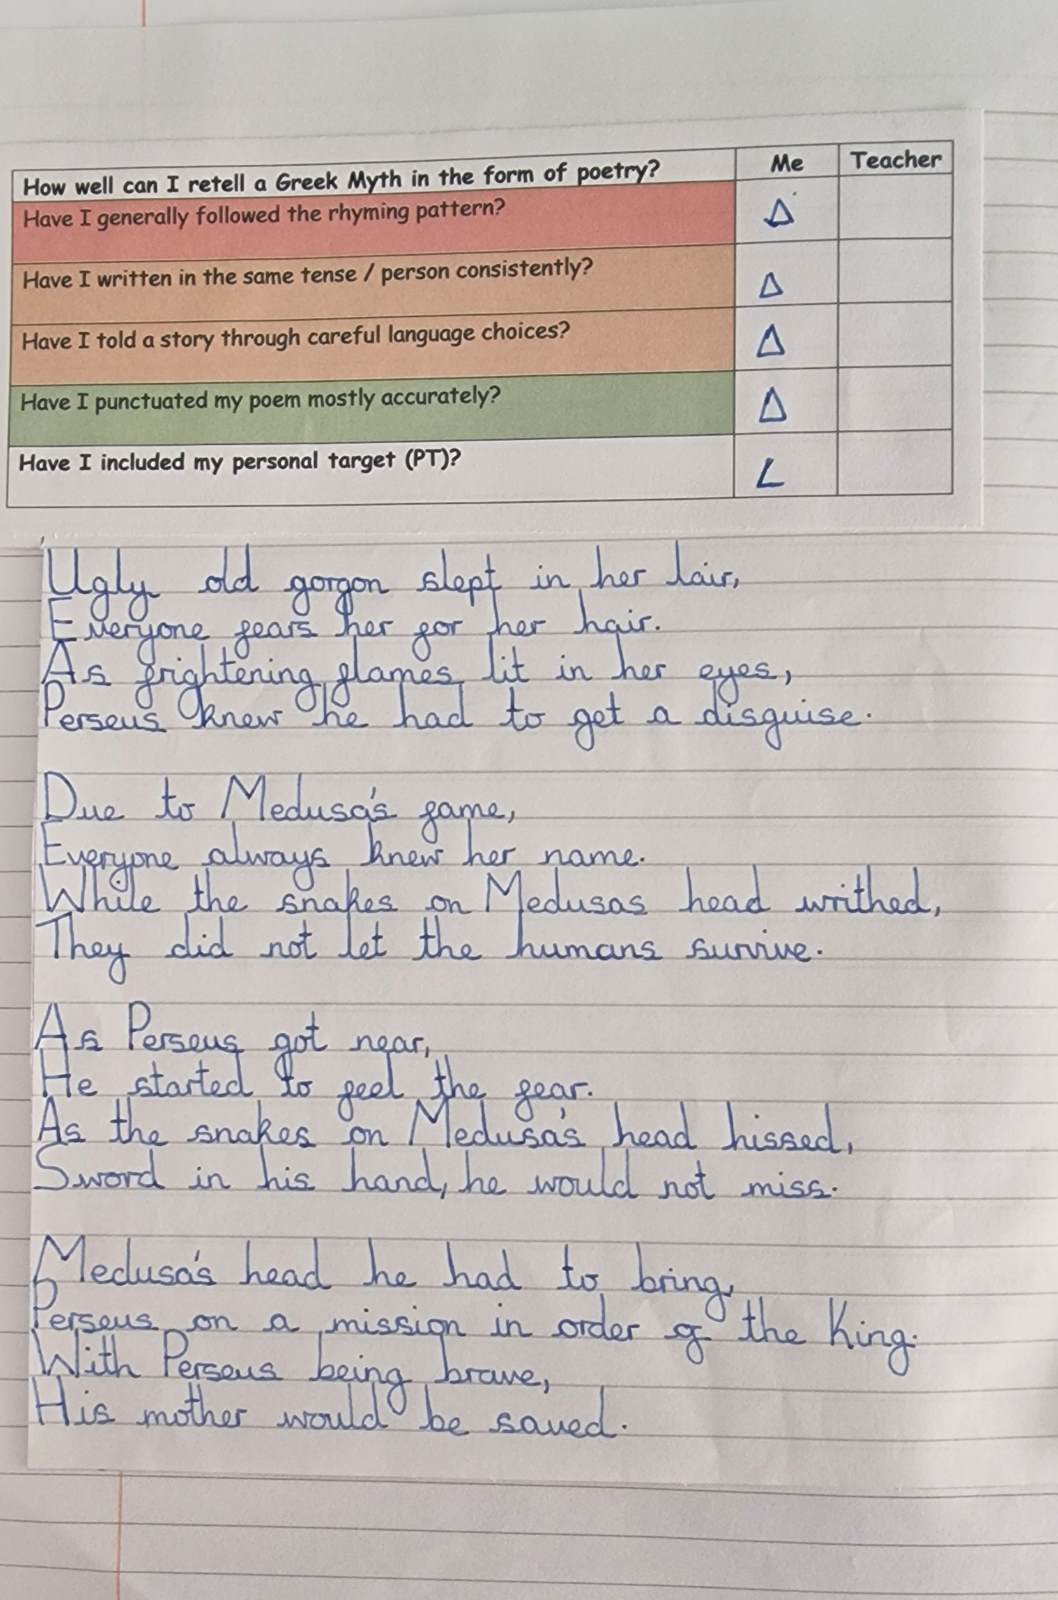 How well can I retell a Greek Myth in the form of poetry? Me Teacher
Have I generally followed the rhyming pattern? Δ
Have I written in the same tense / person consistently? Δ
Have I told a story through careful language choices? Δ
Have I punctuated my poem mostly accurately? Δ
Have I included my personal target (PT)? L
Ugly old gorgon slept in her lair,
Everyone fears her for her hair.
As frightening flames lit in her eyes,
Perseus knew he had to get a disguise.
Due to Medusa's fame,
Everyone always knew her name.
While the snakes on Medusas head writhed,
They did not let the humans survive.
As Perseus got near,
He started to feel the fear.
As the snakes on Medusa's head hissed,
Sword in his hand, he would not miss.
Medusa's head he had to bring,
Perseus on a mission in order of the King.
With Perseus being brave,
His mother would be saved.